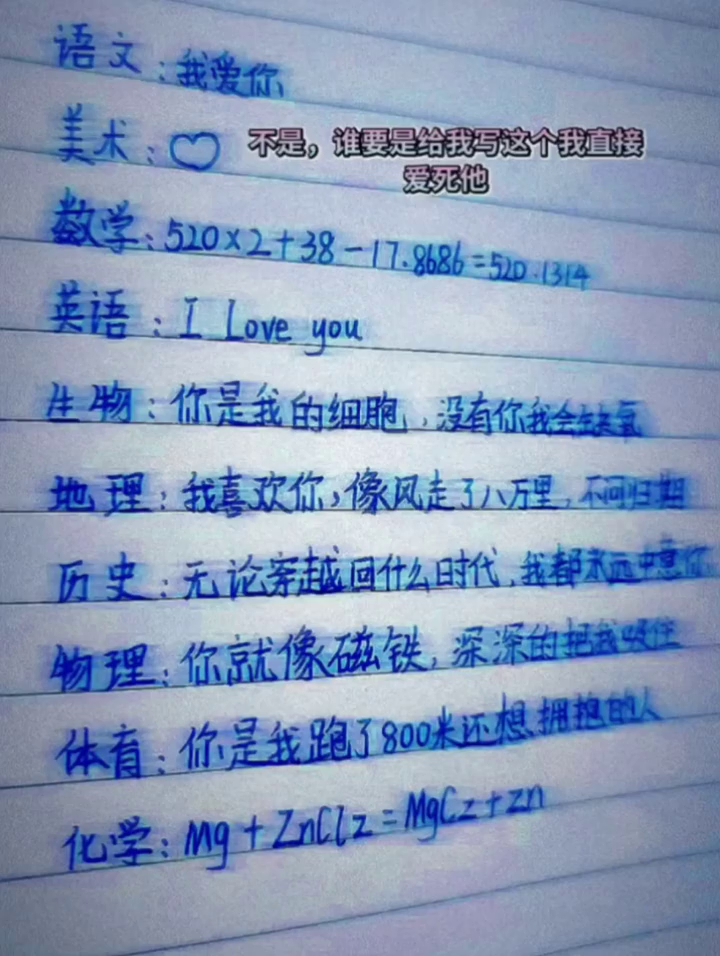 语文：我爱你
美术：♡
不是，谁要是给我写这个我直接
爱死他
数学：520×2+38-17.8686=520.1314
英语：I Love you
生物：你是我的细胞，没有你我会缺氧
地理：我喜欢你，像风走了八万里，不问归期
历史：无论穿越回什么时代，我都永远中意你
物理：你就像磁铁，深深的把我吸住
体育：你是我跑了800米还想拥抱的人
化学：Mg+ZnCl2=MgC2+Zn